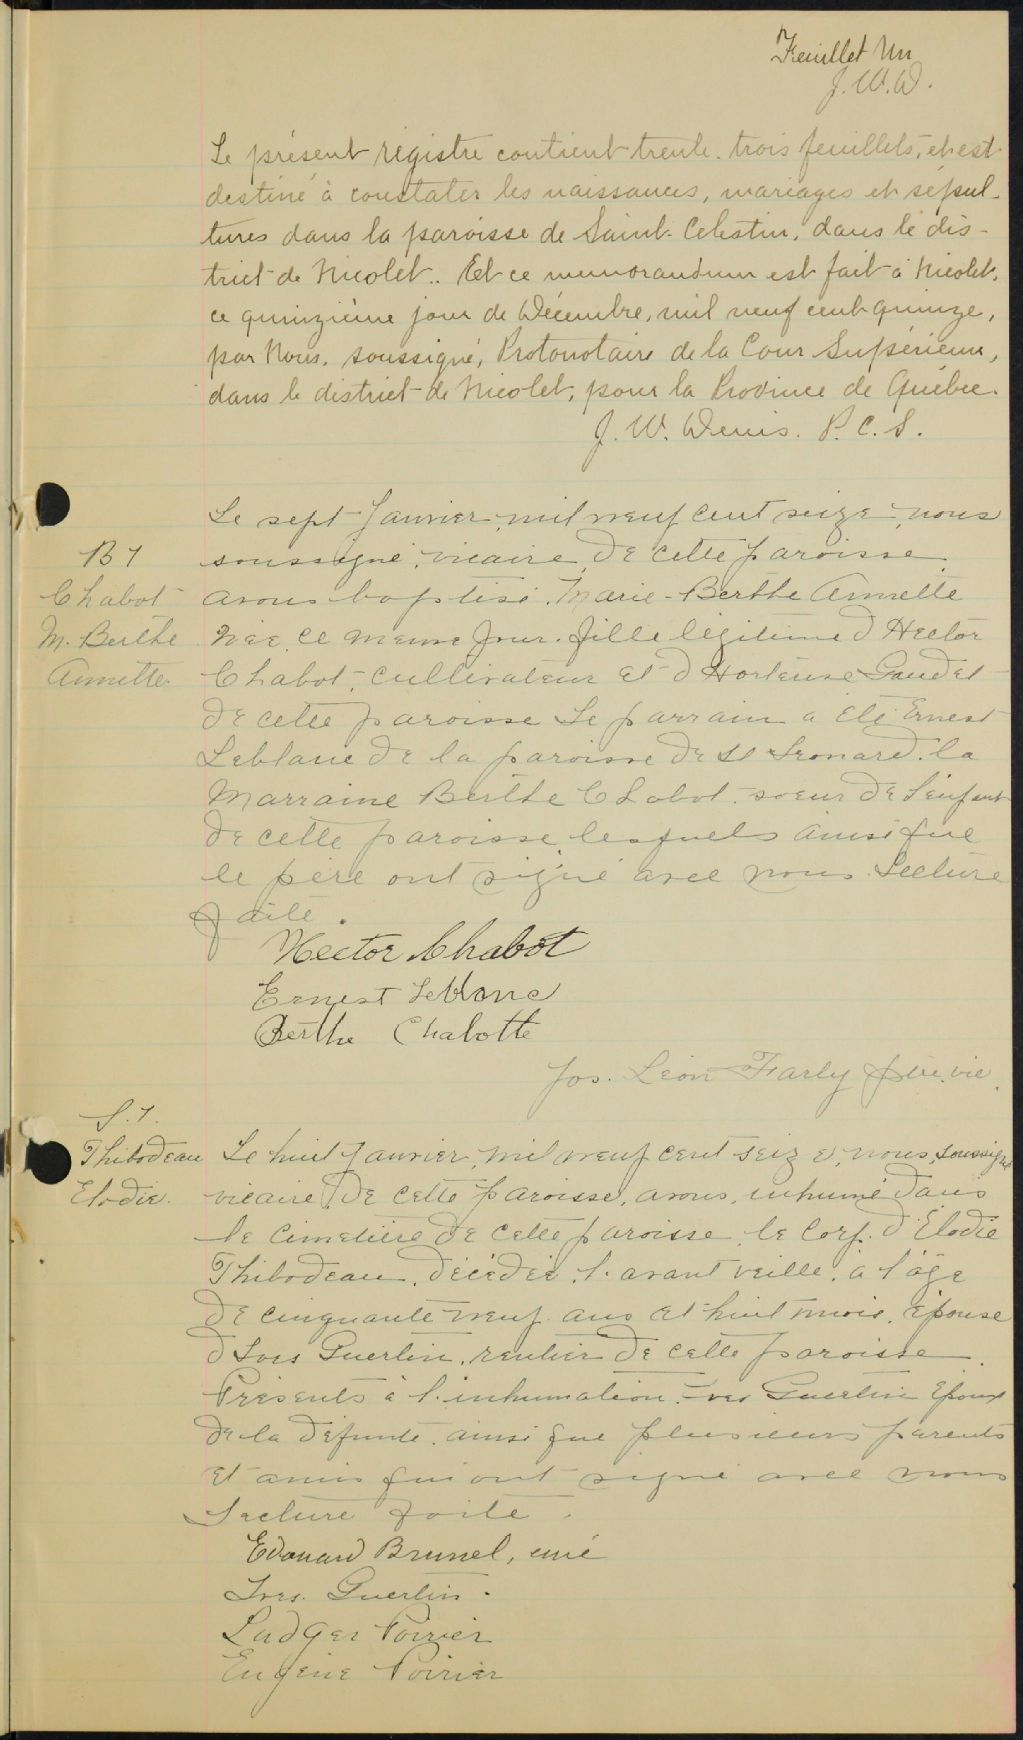 Feuillet Un
J. W. D.
Le présent régistre contient trente-trois feuillets, et est
destiné à constater les naissances, mariages et sépul-
tures dans la paroisse de Saint-Célestin, dans le dis-
trict de Nicolet.. Et ce memorandum est fait à Nicolet,
ce quinzième jour de Décembre, mil neuf cent quinze,
par Nous, soussigné, Protonotaire de la Cour Supérieure,
dans le district de Nicolet, pour la Province de Québec.
J. W. Denis. P. C. S.
B 1
Chabot
M. Berthe
Annette
Le sept Janvier, mil neuf cent seize, nous
soussigné, vicaire de cette paroisse
avons baptisé Marie-Berthe Annette
née ce meme jour fille légitime d'Hector
Chabot, cultivateur et d'Hortense Gaudet
de cette paroisse Le parrain a été Ernest
Leblanc de la paroisse de St Leonard la
Marraine Berthe Chabot soeur de l'enfant
de cette paroisse lesquels ainsi que
le père ont signé avec nous. Lecture
faite.
Hector Chabot
Ernest Leblanc
Berthe Chabotte
Jos. Léon Farly ptre. vic.
S. 1.
Thibodeau
Elodie.
Le huit Janvier, mil neuf cent seize, nous, soussigné
vicaire de cette paroisse, avons inhumé dans
le Cimetière de cette paroisse le corp d'Elodie
Thibodeau, décédée l'avant veille, à l'âge
de cinquante neuf ans et huit mois, épouse
d'Ives Guertin, rentier de cette paroisse.
Présents à l'inhumation Ives Guertin Epoux
de la défunte ainsi que plusieurs parents
et amis qui ont signé avec nous
Lecture faite.
Edouard Brunel, curé
Ives. Guertin.
Ludger Poirier
Eugène Poirier